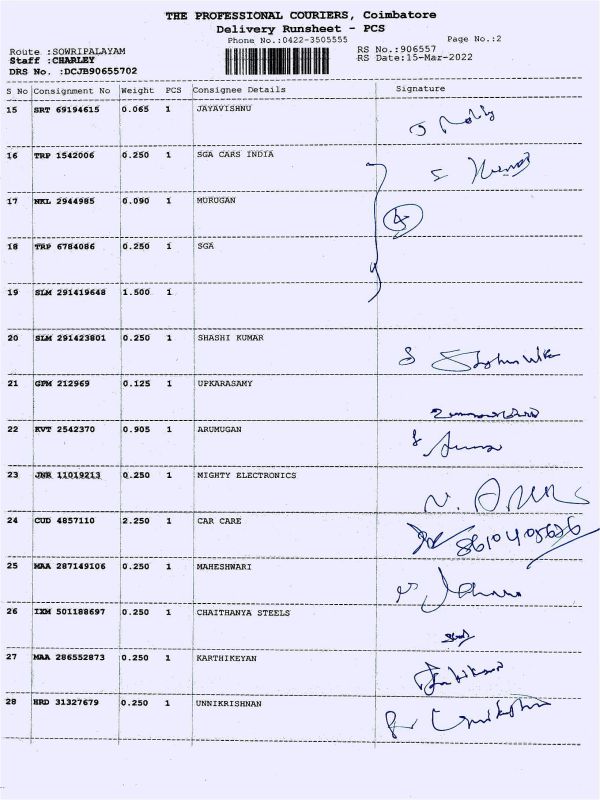 THE PROFESSIONAL COURIERS, Coimbatore
Delivery Runsheet - PCS
Phone No.:0422-3505555 Page No.:2
Route :SOWRIPALAYAM RS No.:906557
Staff :CHARLEY RS Date:15-Mar-2022
DRS No. :DCJB90655702
S No Consignment No Weight PCS Consignee Details Signature
15 SRT 69194615 0.065 1 JAYAVISHNU
16 TRP 1542006 0.250 1 SGA CARS INDIA
17 NKL 2944985 0.090 1 MURUGAN
18 TRP 6784086 0.250 1 SGA
19 SLM 291419648 1.500 1
20 SLM 291423801 0.250 1 SHASHI KUMAR
21 GPM 212969 0.125 1 UPKARASAMY
22 KVT 2542370 0.905 1 ARUMUGAN
23 JNR 11019213 0.250 1 MIGHTY ELECTRONICS
24 CUD 4857110 2.250 1 CAR CARE
25 MAA 287149106 0.250 1 MAHESHWARI
26 IXM 501188697 0.250 1 CHAITHANYA STEELS
27 MAA 286552873 0.250 1 KARTHIKEYAN
28 HRD 31327679 0.250 1 UNNIKRISHNAN